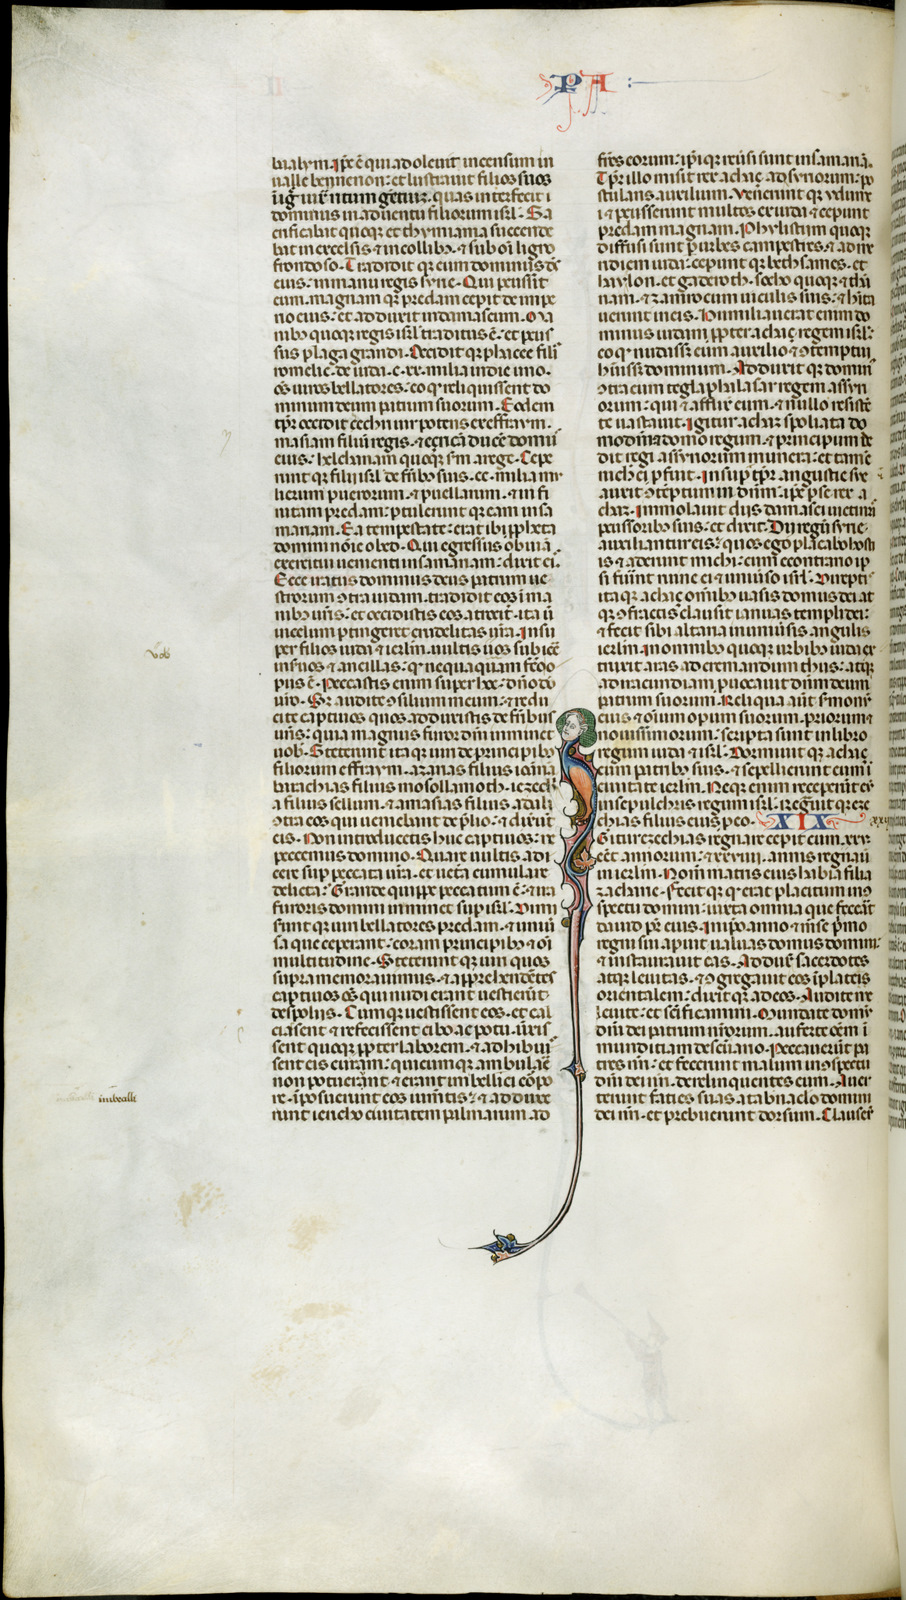 PA
baalym. Ipse ē qui adoleuit incensum in
ualle bennenon: et lustrauit filios suos
dominus in aduentu filiorum isrl. Sa
crificabat quoqʒ et thymiama succende
bat in excelsis ⁊ in collibʒ. ⁊ sub oī ligno
frondoso. Tradidit qʒ eum dominus ds
eius. in manu regis syrie. Qui percussit
eum. magnam qʒ predam cepit de impe
rio eius: et adduxit in damascum. Ma
nibʒ quoqʒ regis isrl traditus ē. et percus
sus plaga grandi. Occidit qʒ phacee fili
romelie. de iuda. c. xx. milia in die uno.
oēs uiros bellatores. eo qʒ reliquissent do
minum deum patrum suorum. Eodem
tpr occidit zechri uir potens ex effraym.
masiam filiū regis. ⁊ ezricā ducē domū
eius. helchanam quoqʒ sm a rege. Cepe
runt qʒ filii isrl de fribʒ suis. cc. milia mu
lierum puerorum. ⁊ puellarum. ⁊ infi
nitam predam: ptulerunt qʒ eam in sa
mariam. Ea tempestate: erat ibi ppheta
domini nōie obed. Qui egressus obuiā
exercitui uenienti in samariam: dixit ei.
Ecce iratus dominus deus patrum ue
strorum ꝯtra iudam. tradidit eos ī ma
nibʒ uris: et occidistis eos atrocit. ita ū
in celum ptingeret crudelitas ura. Insu
per filios iuda ⁊ ierlm. uultis uos subicē
in seruos ⁊ ancillas: qʒ nequaquam fcō o
pus ē. Peccastis enim super hoc. dno dō
uro. Sʒ audite ꝯsilium meum: ⁊ redu
cite captiuos quos adduxistis de fribus
uris: quia magnus furor dni imminet
uob. Steterunt itaqʒ uiri de principibʒ
filiorum effraym. azarias filius iohā
barachias filius mosollamoth. iezechi
a filius sellum. ⁊ amasias filius adali
ꝯtra eos qui ueniebant de plio. ⁊ dixerūt
eis. Non introducetis huc captiuos: ne
peccemus domino. Quare uultis adi
cere sup peccata ura. et uetera cumulare
delicta: Grande quippe peccatum ē: ⁊ ira
furoris domini imminet sup isrl. Dimi
serunt qʒ uiri bellatores predam. ⁊ uniū
sa que ceperant: coram principibʒ ⁊ oī
multitudine. Steterunt qʒ uiri quos
supra memorauimus. ⁊ apprehendētes
captiuos oēs qui nudi erant uestierūt
de spoliis. Cumqʒ uestissent eos. et cal
ciassent ⁊ refecissent cibo ac potu. unxis
sent quoqʒ ppter laborem. ⁊ adhibuis
sent eis curam: quicumqʒ ambulare
non poterant ⁊ erant imbelli ei corpo
re. iposuerunt eos iumtis: ⁊ adduxe
runt iericho ciuitatem palmarum ad
fres eorum: ipsi qʒ reusi sunt in samariā.
Tpr illo misit rex achaz ad regem assyriorum: po
stulans auxilium. Venerunt qʒ ydume
i ⁊ percusserunt multos ex iuda ⁊ ceperunt
predam magnam. Phylistiim quoqʒ
diffusi sunt p urbes campestres. ⁊ ad me
ridiem iuda: ceperunt qʒ bethsames. et
haylon. et gaderoth. socho quoqʒ ⁊ tha
nam. ⁊ zamro cum uiculis suis: ⁊ hita
uerunt in eis. Humiliauerat enim do
minus iudam ppter achaz regem isrl:
eo qʒ nudasset eum auxilio ⁊ ꝯtemptui
huisset dominum. Adduxit qʒ domin
ꝯtra eum teglaphalasar regem assyri
orum: qui ⁊ afflixit eum. ⁊ nullo resistē
te uastauit. Igitur achaz spoliata do
mo dni ⁊ domo regum. ⁊ principum de
dit regi assyriorum munera: et tamē
nichil ei pfuit. Insup tpr angustie sue
auxit ꝯteptum in dnm: ipse p se rex a
chaz. Immolauit diis damasci uictimā
percussoribʒ suis. et dixit. Dii regū syrie.
auxiliantur eis: quos ego placabo hosti
is ⁊ aderunt michi: cum econtrario ip
si fuerint ruine ei ⁊ uniuso isrl. Direpti
itaqʒ achaz omnibʒ uasis domus dei at
qʒ ꝯfractis: clausit ianuas templi dei:
⁊ fecit sibi altaria in uniusis angulis
ierlm. In omnibʒ quoqʒ urbibʒ iuda ex
truxit aras ad cremandum thus: atqʒ
ad iracundiam puocauit dnm deum
patrum suorum. Reliqua aūt smonū
eius ⁊ oīum opum suorum. priorum ⁊
nouissimorum: scripta sunt in libro
regum iuda ⁊ isrl. Dormiuit qʒ achaz
cum patribʒ suis. ⁊ sepelierunt eum ī
ciuitate ierlm. Neqʒ enim receperunt eū
in sepulchris regum isrl. Regnauit qʒ eze
chias filius eius p eo. XIX
Igitur ezechias regnare cepit cum xxv
eēt annorum: ⁊ xxviiii. annis regnauit
in ierlm. Nom matris eius habia filia
zacharie. Fecit qʒ qʒ erat placitum in ꝯ
spectu domini: iuxta omnia que fecerat
dauid pr eius. In ipo anno ⁊ mse pmo
regni sui aperuit ualuas domus domini:
⁊ instaurauit eas. Adduxit sacerdotes
atqʒ leuitas. ⁊ ꝯgregauit eos ī plateis
orientalem: dixit qʒ ad eos. Audite me
leuite: et scificamini. Mundate domū
dni dei patrum urorum. auferte oēm ī
mundiciam de scuario. Peccauerūt pa
tres nri: et fecerunt malum in ꝯspectu
dni dei nri. derelinquentes eum. Auer
terunt facies suas a tabnaclo domini
dei nri. et prebuerunt dorsum. Clauser
vob
imbecilli